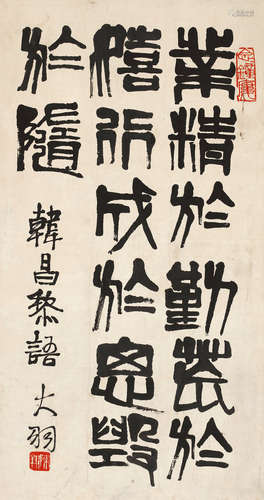 業精於勤荒於
嬉行成於思毀
於隨
韓昌黎語 大羽